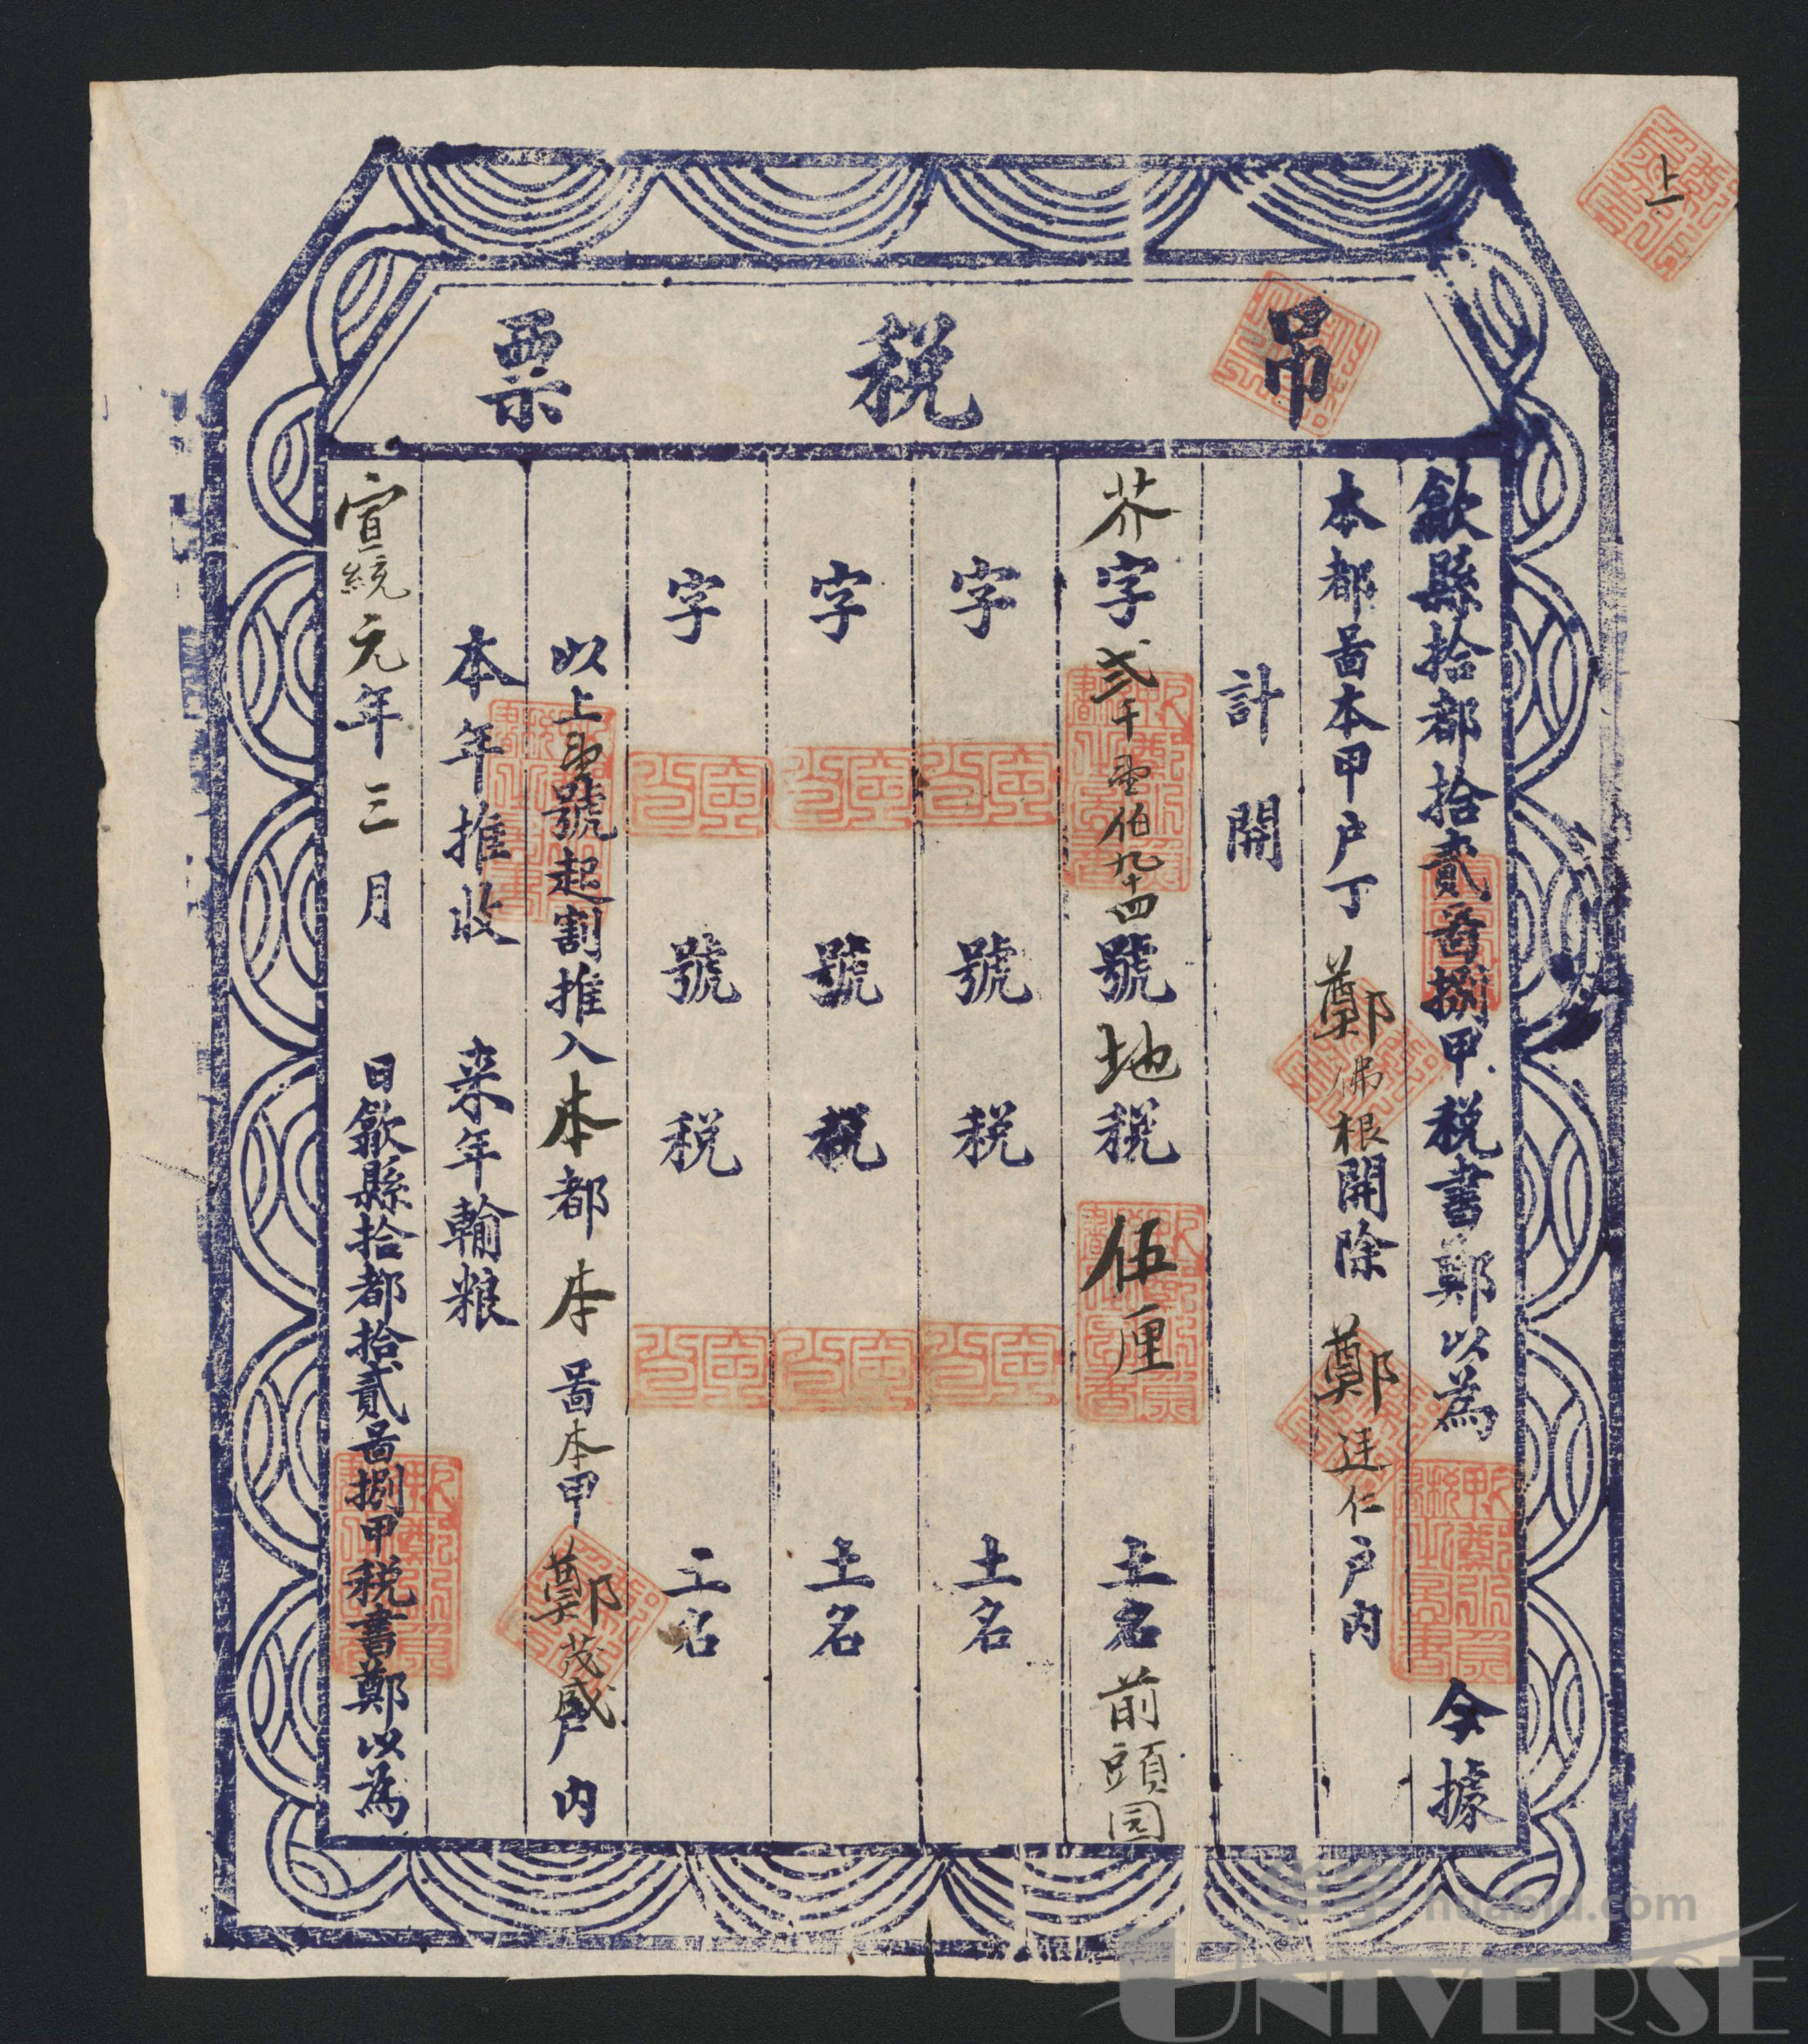 上
吊税票
歙縣拾都拾貳啚捌甲税書鄭以為 今據
本都啚本甲户丁鄭佛根開除鄭廷仁户内
計開
芥字弍千壹伯九十四號地税伍厘 土名前頭园
字 號 税 土名
字 號 税 土名
字 號 税 土名
以上壹號起割推入本都本啚本甲鄭茂盛户内
本年推收 来年輸粮
宣統元年三月 日歙縣拾都拾貳啚捌甲税書鄭以為
huabid.com
UNIVERSE